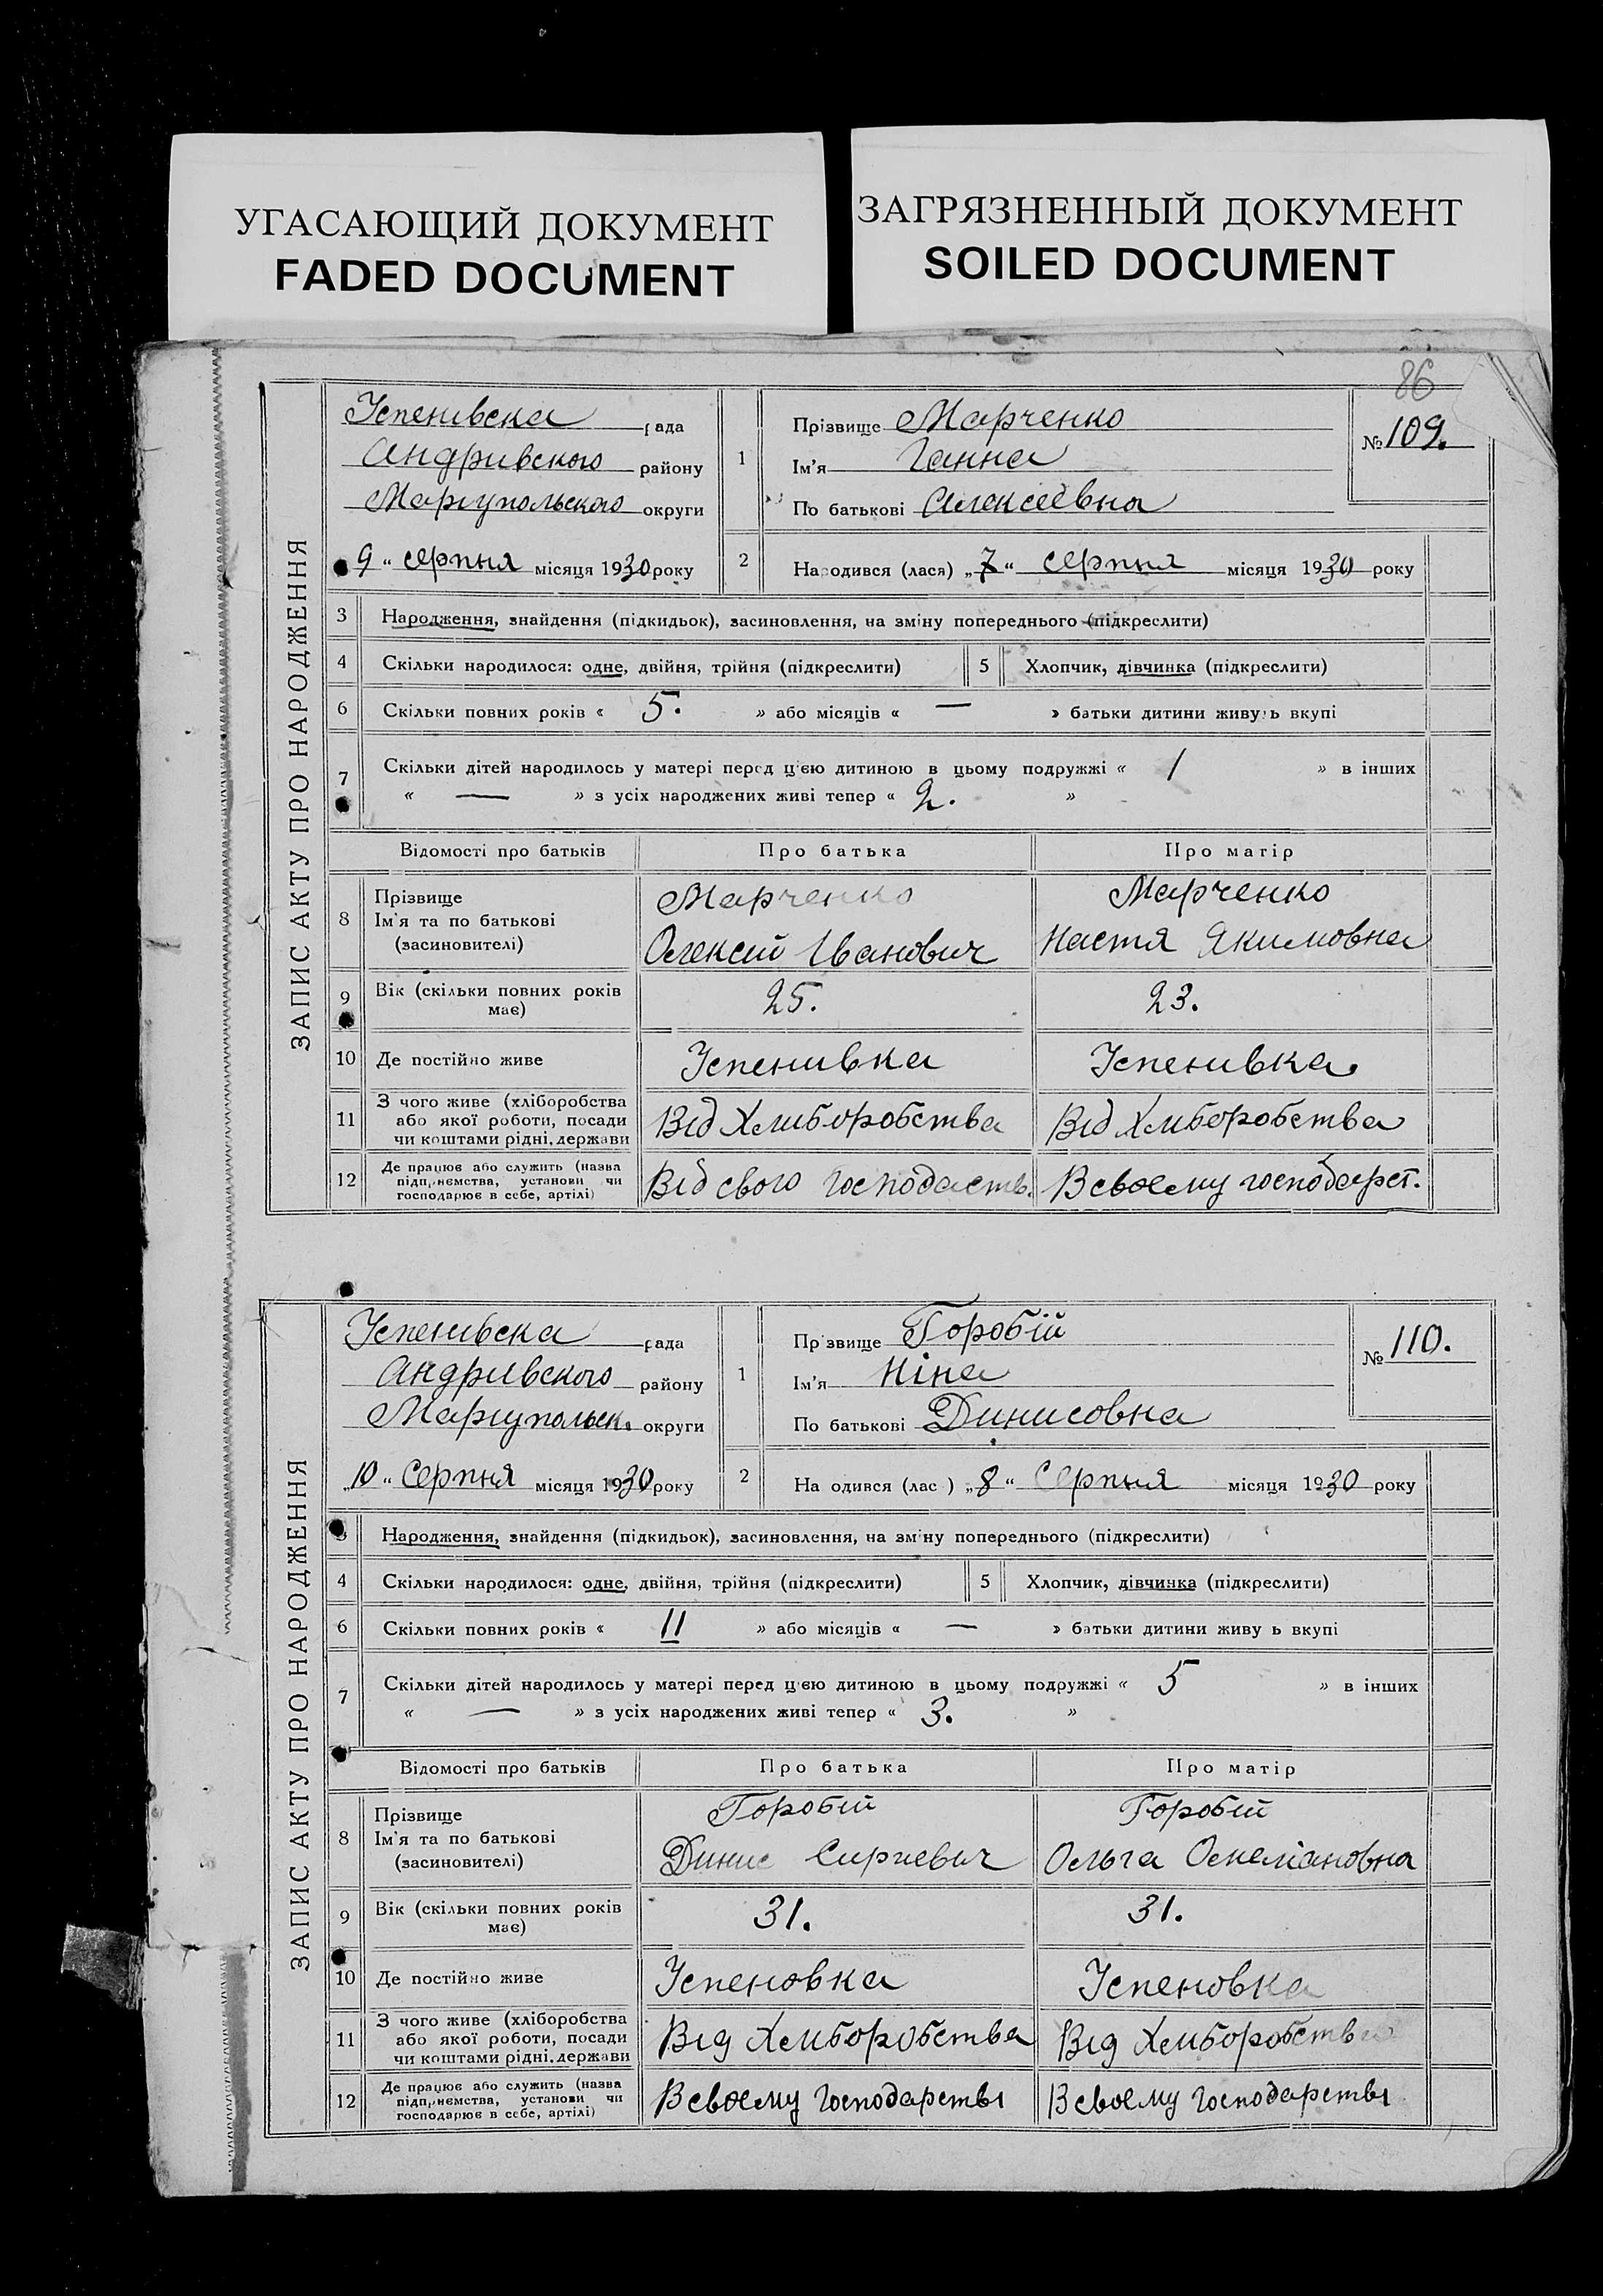 УГАСАЮЩИЙ ДОКУМЕНТ
FADED DOCUMENT
ЗАГРЯЗНЕННЫЙ ДОКУМЕНТ
SOILED DOCUMENT
86
ЗАПИС АКТУ ПРО НАРОДЖЕННЯ
Успенивска рада
Андривського району
Маріупольского округи
9 " серпня місяця 1930 року
1
Прізвище Марченко
Ім'я Ганна
По батькові Алексеевна
№ 109.
2 Народився (лася) „7" серпня місяця 1930 року
3 Народження, знайдення (підкидьок), засиновлення, на зміну попереднього (підкреслити)
4 Скільки народилося: одне, двійня, трійня (підкреслити) 5 Хлопчик, дівчинка (підкреслити)
6 Скільки повних років « 5. » або місяців « — » батьки дитини живуть вкупі
7 Скільки дітей народилось у матері перед цією дитиною в цьому подружжі « 1 » в інших
« — » з усіх народжених живі тепер « 2. »
Відомості про батьків Про батька Про матір
8 Прізвище
Ім'я та по батькові
(засиновителі)
Марченко
Олексій Іванович
Марченко
Настя Якимовна
9 Вік (скільки повних років має) 25. 23.
10 Де постійно живе Успенивка Успенивка.
11 З чого живе (хліборобства
або якої роботи, посади
чи коштами рідні, держави
Від Хлиборобства Від Хлиборобства
12 Де працює або служить (назва
підприємства, установи чи
господарює в себе, артілі)
Від свого господаств. В своєму господарст.
ЗАПИС АКТУ ПРО НАРОДЖЕННЯ
Успенивска рада
Андривского району
Маріупольск. округи
„10" Серпня місяця 1930 року
1
Прізвище Горобій
Ім'я Ніна
По батькові Динисовна
№ 110.
2 На одився (лас ) „8" Серпня місяця 1930 року
3 Народження, знайдення (підкидьок), засиновлення, на зміну попереднього (підкреслити)
4 Скільки народилося: одне, двійня, трійня (підкреслити) 5 Хлопчик, дівчинка (підкреслити)
6 Скільки повних років « 11 » або місяців « — » батьки дитини живу ь вкупі
7 Скільки дітей народилось у матері перед цією дитиною в цьому подружжі « 5 » в інших
« — » з усіх народжених живі тепер « 3. »
Відомості про батьків Про батька Про матір
8 Прізвище
Ім'я та по батькові
(засиновителі)
Горобій
Динис Сиргевич
Горобій
Ольга
9 Вік (скільки повних років має) 31. 31.
10 Де постійно живе Успеновка Успеновка
11 З чого живе (хліборобства
або якої роботи, посади
чи коштами рідні, держави
Від Хлиборобства Від Хлиборобства
12 Де працює або служить (назва
підприємства, установи чи
господарює в себе, артілі)
В своєму господарстві В своєму господарстві